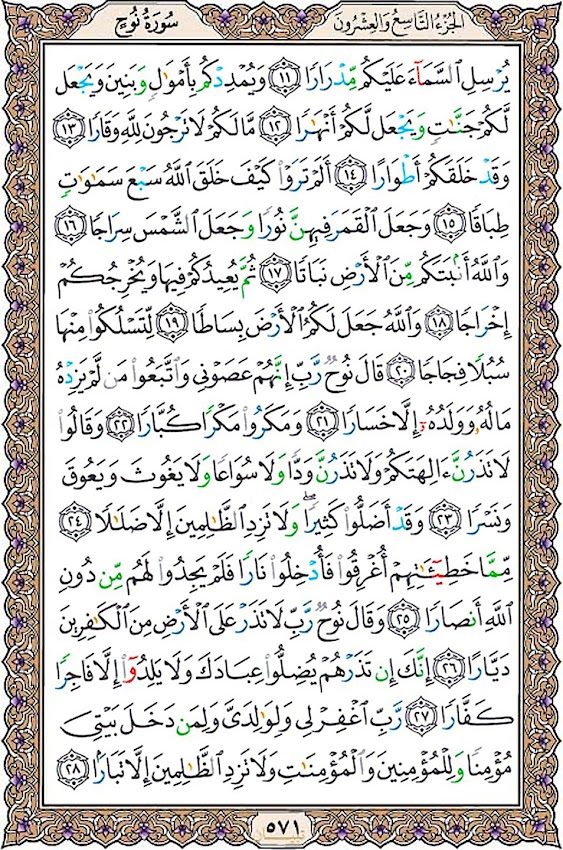 سُورَةُ نُوحٍ الجُزْءُ التَّاسِعُ وَالعِشْرُونَ
يُرْسِلِ ٱلسَّمَآءَ عَلَيْكُم مِّدْرَارًا ١١ وَيُمْدِدْكُم بِأَمْوَٰلٍ وَبَنِينَ وَيَجْعَل
لَّكُمْ جَنَّٰتٍ وَيَجْعَل لَّكُمْ أَنْهَٰرًا ١٢ مَّا لَكُمْ لَا تَرْجُونَ لِلَّهِ وَقَارًا ١٣
وَقَدْ خَلَقَكُمْ أَطْوَارًا ١٤ أَلَمْ تَرَوْا۟ كَيْفَ خَلَقَ ٱللَّهُ سَبْعَ سَمَٰوَٰتٍ
طِبَاقًا ١٥ وَجَعَلَ ٱلْقَمَرَ فِيهِنَّ نُورًا وَجَعَلَ ٱلشَّمْسَ سِرَاجًا ١٦
وَٱللَّهُ أَنۢبَتَكُم مِّنَ ٱلْأَرْضِ نَبَاتًا ١٧ ثُمَّ يُعِيدُكُمْ فِيهَا وَيُخْرِجُكُمْ
إِخْرَاجًا ١٨ وَٱللَّهُ جَعَلَ لَكُمُ ٱلْأَرْضَ بِسَاطًا ١٩ لِّتَسْلُكُوا۟ مِنْهَا
سُبُلًا فِجَاجًا ٢٠ قَالَ نُوحٌ رَّبِّ إِنَّهُمْ عَصَوْنِى وَٱتَّبَعُوا۟ مَن لَّمْ يَزِدْهُ
مَالُهُۥ وَوَلَدُهُۥٓ إِلَّا خَسَارًا ٢١ وَمَكَرُوا۟ مَكْرًا كُبَّارًا ٢٢ وَقَالُوا۟
لَا تَذَرُنَّ ءَالِهَتَكُمْ وَلَا تَذَرُنَّ وَدًّا وَلَا سُوَاعًا وَلَا يَغُوثَ وَيَعُوقَ
وَنَسْرًا ٢٣ وَقَدْ أَضَلُّوا۟ كَثِيرًا ۖ وَلَا تَزِدِ ٱلظَّٰلِمِينَ إِلَّا ضَلَٰلًا ٢٤
مِّمَّا خَطِيٓـَٰٔتِهِمْ أُغْرِقُوا۟ فَأُدْخِلُوا۟ نَارًا فَلَمْ يَجِدُوا۟ لَهُم مِّن دُونِ
ٱللَّهِ أَنصَارًا ٢٥ وَقَالَ نُوحٌ رَّبِّ لَا تَذَرْ عَلَى ٱلْأَرْضِ مِنَ ٱلْكَٰفِرِينَ
دَيَّارًا ٢٦ إِنَّكَ إِن تَذَرْهُمْ يُضِلُّوا۟ عِبَادَكَ وَلَا يَلِدُوٓا۟ إِلَّا فَاجِرًا
كَفَّارًا ٢٧ رَّبِّ ٱغْفِرْ لِى وَلِوَٰلِدَىَّ وَلِمَن دَخَلَ بَيْتِىَ
مُؤْمِنًا وَلِلْمُؤْمِنِينَ وَٱلْمُؤْمِنَٰتِ وَلَا تَزِدِ ٱلظَّٰلِمِينَ إِلَّا تَبَارًۢا ٢٨
٥٧١